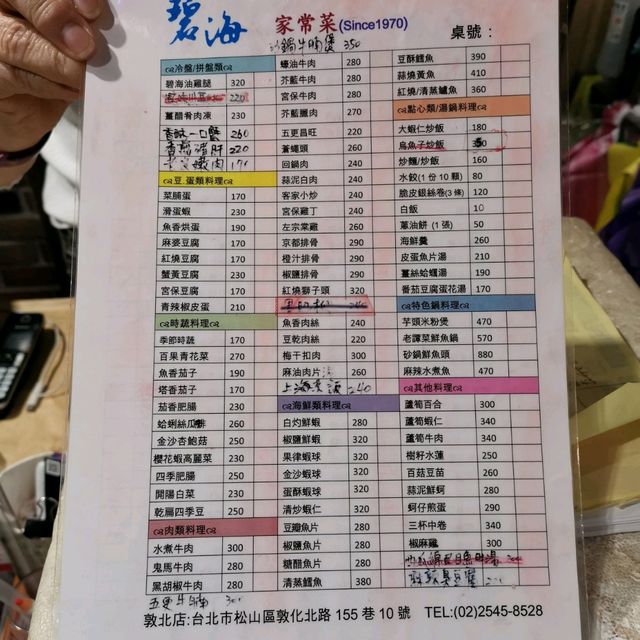 碧海 家常菜(Since1970) 桌號：
沙鍋牛腩煲 350
冷盤/拼盤類
碧海油雞腿 320
220
薑醋肴肉凍 230
香酥一口蟹 260
220
190
豆.蛋類料理
菜脯蛋 170
滑蛋蝦 230
魚香烘蛋 190
麻婆豆腐 170
紅燒豆腐 170
蟹黃豆腐 230
宮保豆腐 170
青辣椒皮蛋 210
時蔬料理
季節時蔬 170
百果青花菜 270
魚香茄子 190
塔香茄子 170
茄香肥腸 230
蛤蜊絲瓜 260
金沙杏鮑菇 250
櫻花蝦高麗菜 230
四季肥腸 250
開陽白菜 230
乾扁四季豆 250
肉類料理
水煮牛肉 300
鬼馬牛肉 280
黑胡椒牛肉 280
五更牛腩 300
蠔油牛肉 280
芥藍牛肉 280
宮保牛肉 280
芥藍臘肉 270
五更昌旺 220
蒼蠅頭 260
回鍋肉 240
蒜泥白肉 240
客家小炒 240
宮保雞丁 240
左宗棠雞 260
京都排骨 290
橙汁排骨 290
椒鹽排骨 290
紅燒獅子頭 320
魚香肉絲 240
豆乾肉絲 220
梅干扣肉 300
麻油肉片 280
240
海鮮類料理
白灼鮮蝦 280
椒鹽鮮蝦 320
果律蝦球 320
金沙蝦球 320
蛋酥蝦球 320
清炒蝦仁 320
豆瓣魚片 280
椒鹽魚片 280
糖醋魚片 280
清蒸鱈魚 380
豆酥鱈魚 390
蒜燒黃魚 410
紅燒/清蒸鱸魚 360
點心類/湯鍋料理
大蝦仁炒飯 180
烏魚子炒飯
炒麵/炒飯 160
水餃(1份10顆) 80
脆皮銀絲卷(3條) 120
白飯 10
蔥油餅 (1張) 50
海鮮羹 260
皮蛋魚片湯 210
薑絲蛤蠣湯 190
番茄豆腐蛋花湯 170
特色鍋料理
芋頭米粉煲 470
老譚菜鮮魚鍋 570
砂鍋鮮魚頭 880
麻辣水煮魚 470
其他料理
蘆筍百合 300
蘆筍蝦仁 340
蘆筍牛肉 340
樹籽水蓮 250
百菇豆苗 260
蒜泥鮮蚵 280
蚵仔煎蛋 290
三杯中卷 340
椒麻雞 300
敦北店:台北市松山區敦化北路 155 巷 10 號 TEL:(02)2545-8528